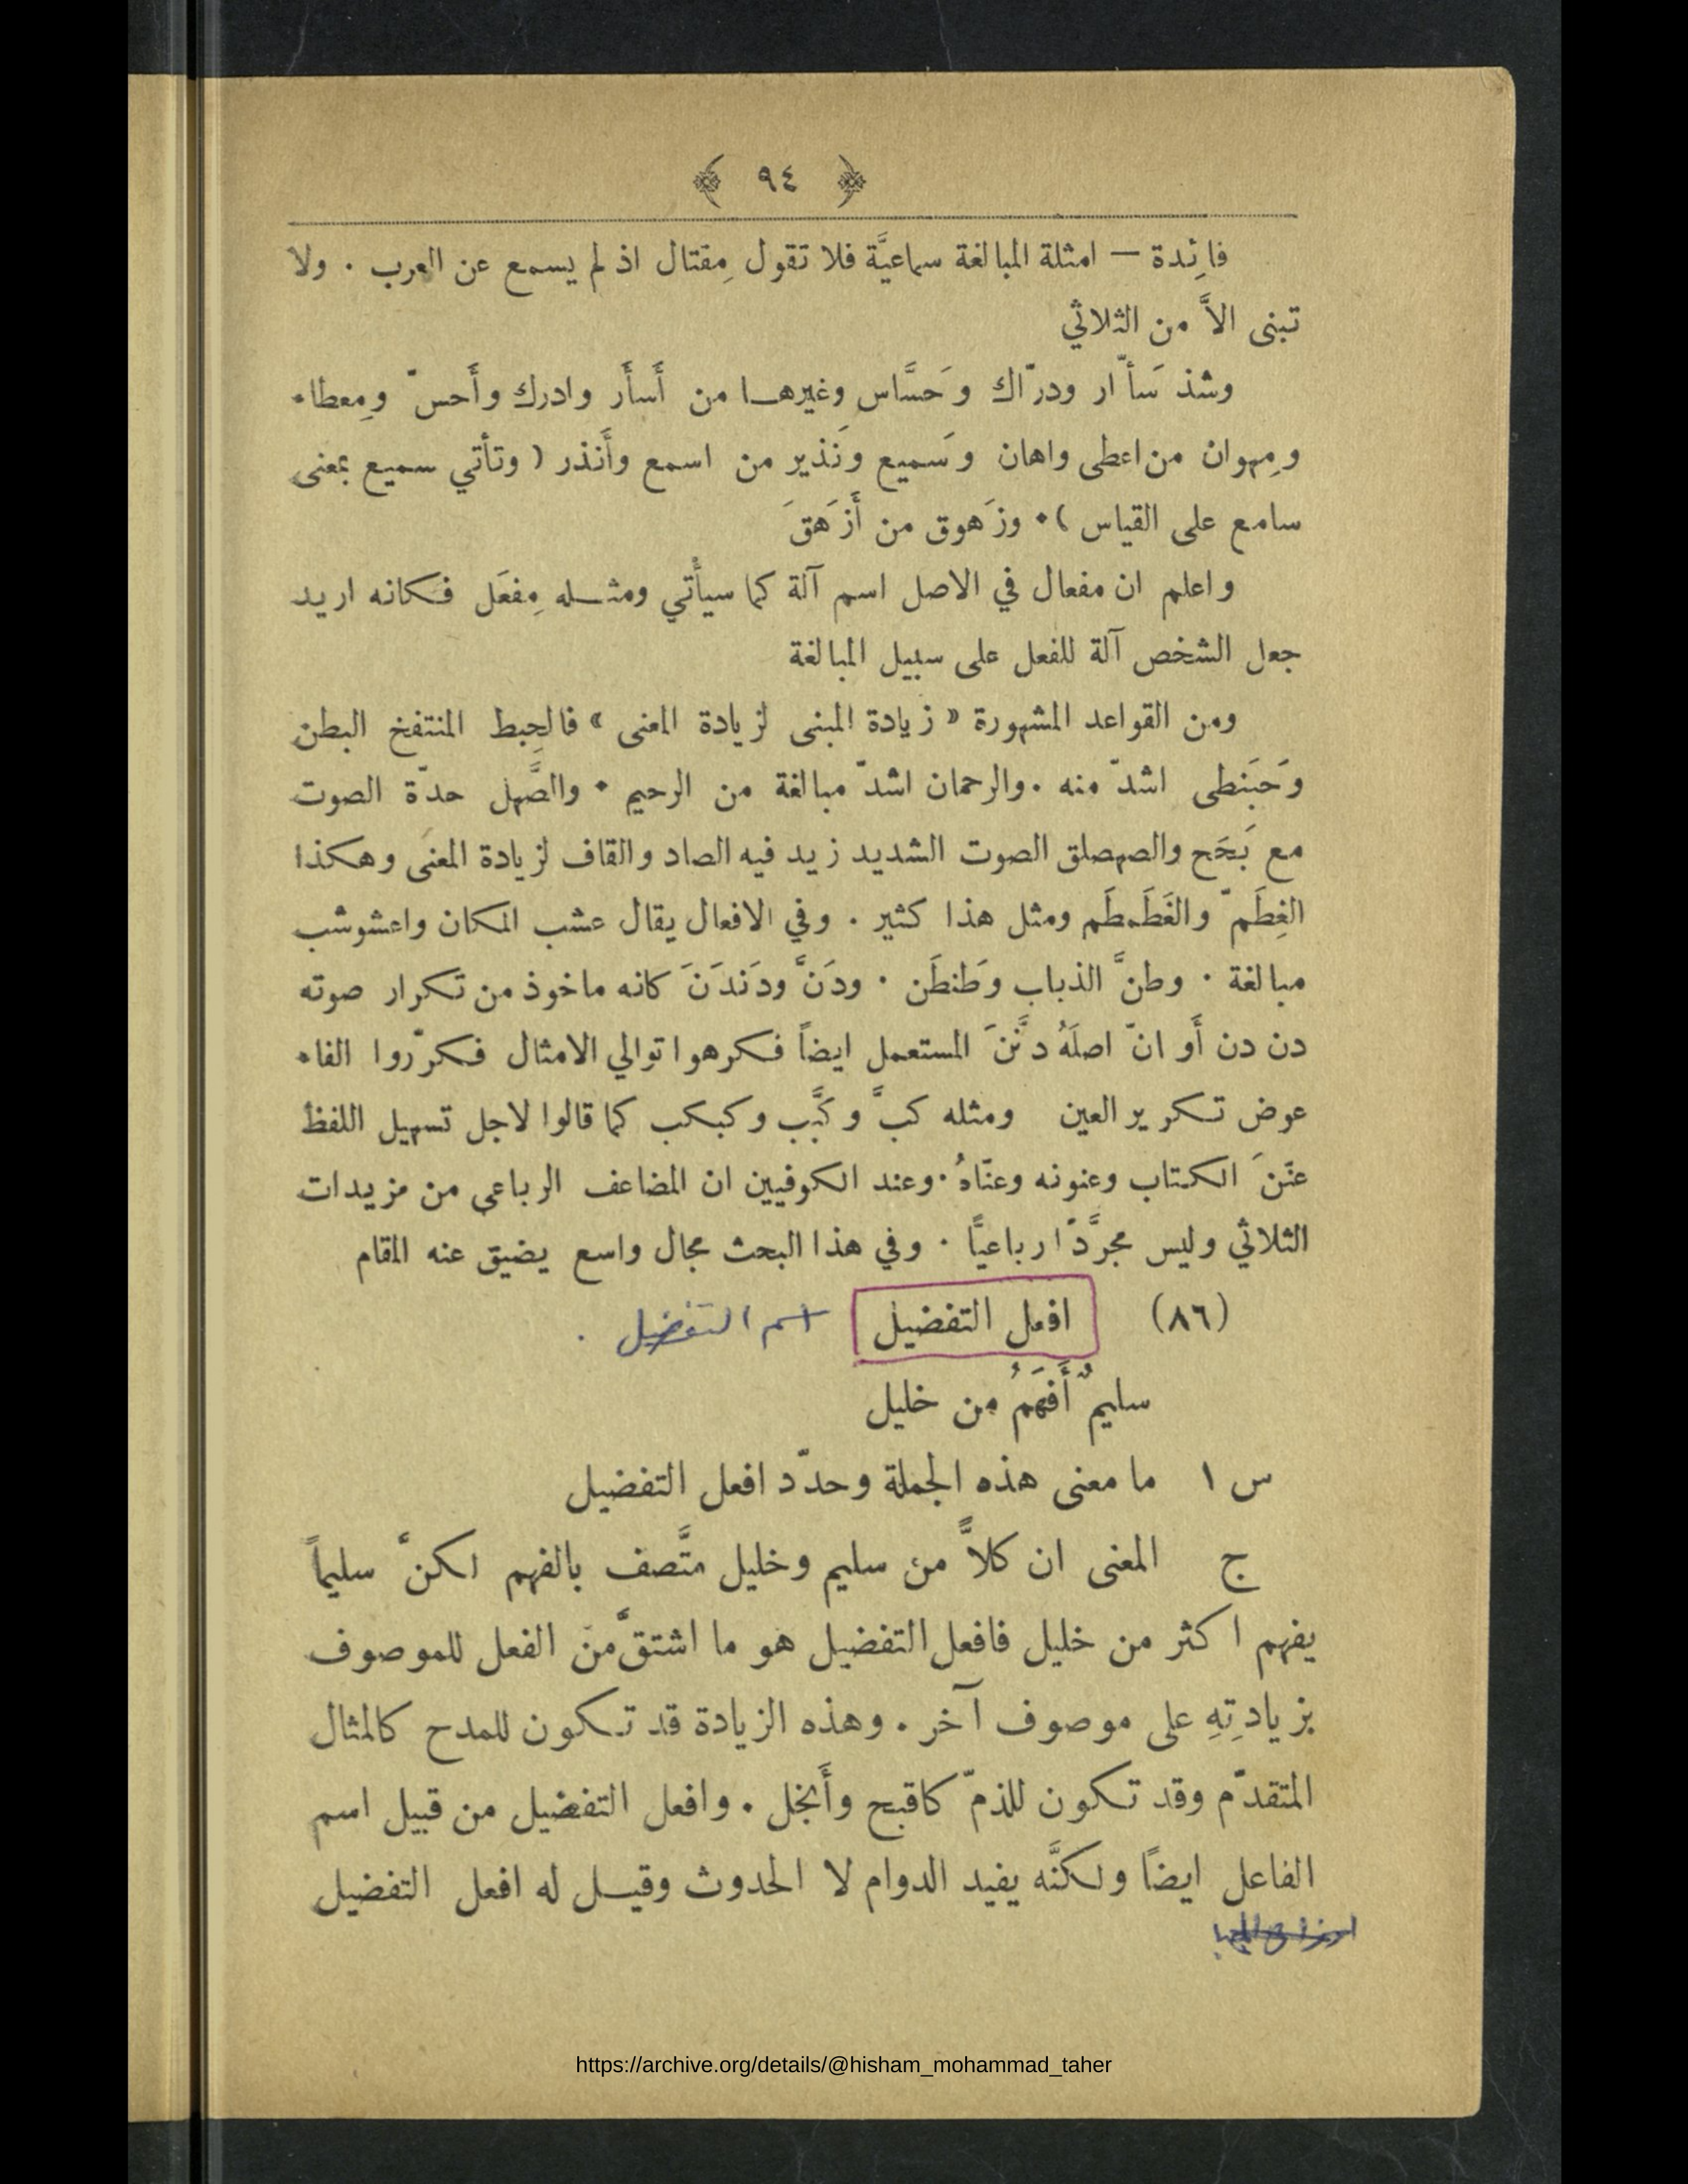 ﴿ ٩٤ ﴾
فائِدة — امثلة المبالغة سماعيَّة فلا تقول مِقتال اذ لم يسمع عن العرب . ولا
تبنى الاَّ من الثلاثي
وشذ سَأّار ودرّاك وحَسَّاس وغيرها من أَسأَر وادرك وأَحسّ ومِعطاء
ومِهوان من اعطى واهان وسَميع ونَذير من اسمع وأَنذر ( وتأتي سميع بمعنى
سامع على القياس ) . وزَهوق من أَزهَقَ
واعلم ان مفعال في الاصل اسم آلة كما سيأْتي ومثله مِفعَل فكانه اريد
جعل الشخص آلة للفعل على سبيل المبالغة
ومن القواعد المشهورة « زيادة المبنى لزيادة المعنى » فالحِبط المنتفخ البطن
وحَبَنطى اشدّ منه . والرحمان اشدّ مبالغة من الرحيم . والصَّهل حدّة الصوت
مع بَحَح والصهصلق الصوت الشديد زيد فيه الصاد والقاف لزيادة المعنى وهكذا
الغِطَمّ والغَطَمطَم ومثل هذا كثير . وفي الافعال يقال عشب المكان واعشوشب
مبالغة . وطنَّ الذباب وطَنطَن . ودَنَّ ودَندَنَ كانه ماخوذ من تكرار صوته
دن دن أَو انّ اصلَهُ دنَّنَ المستعمل ايضاً فكرهوا توالي الامثال فكرّروا الفاء
عوض تكرير العين ومثله كبَّ وكبَّب وكبكب كما قالوا لاجل تسهيل اللفظ
عنّنَ الكتاب وعنونه وعنّاهُ . وعند الكوفيين ان المضاعف الرباعي من مزيدات
الثلاثي وليس مجرَّدًا رباعيًّا . وفي هذا البحث مجال واسع يضيق عنه المقام
(٨٦) افعل التفضيل اسم التفضيل .
سليمٌ أَفهَمُ من خليل
س ١ ما معنى هذه الجملة وحدّد افعل التفضيل
ج المعنى ان كلاًّ من سليم وخليل متَّصف بالفهم لكنَّ سليماً
يفهم اكثر من خليل فافعل التفضيل هو ما اشتقَّ من الفعل للموصوف
بزيادتِهِ على موصوف آخر . وهذه الزيادة قد تكون للمدح كالمثال
المتقدّم وقد تكون للذمّ كاقبح وأَبخل . وافعل التفضيل من قبيل اسم
الفاعل ايضًا ولكنَّه يفيد الدوام لا الحدوث وقيل له افعل التفضيل
https://archive.org/details/@hisham_mohammad_taher